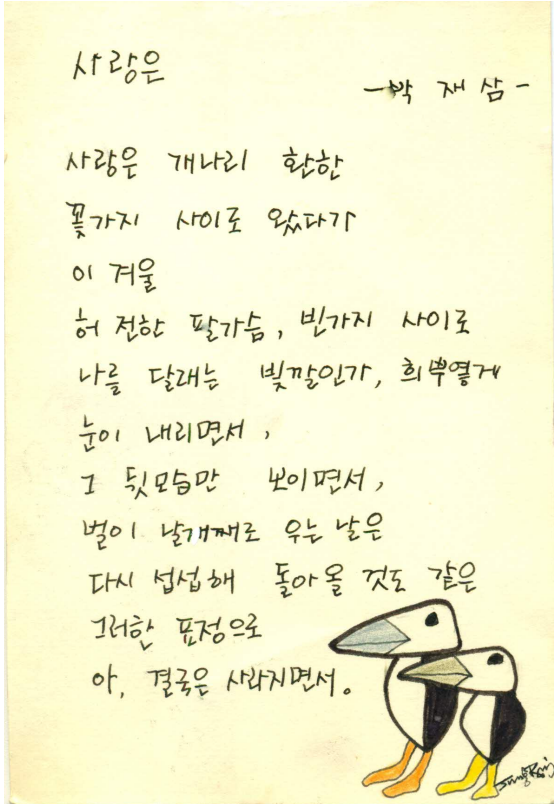 사랑은
-박 재 삼-
사랑은 개나리 환한
꽃가지 사이로 왔다가
이 겨울
허 전한 팔가슴, 빈가지 사이로
나를 달래는 빛깔인가, 희뿌옇게
눈이 내리면서,
그 뒷모습만 보이면서,
벌이 날개째로 우는 날은
다시 섭섭해 돌아올 것도 같은
그러한 표정으로
아, 결국은 사라지면서.